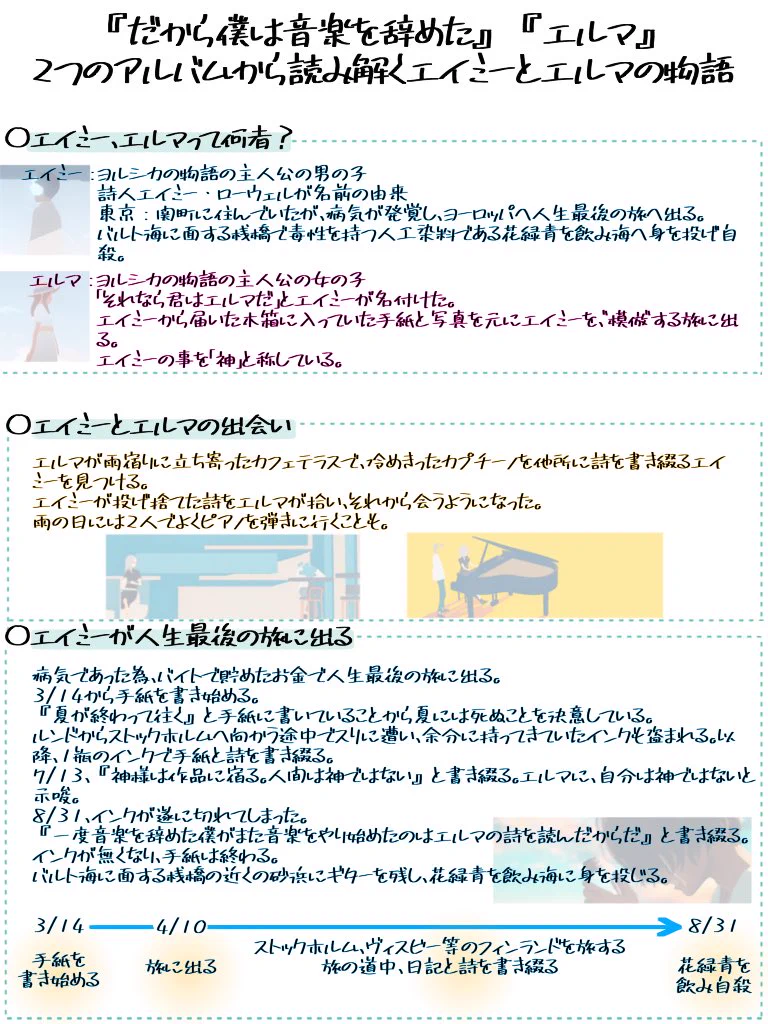 『だから僕は音楽を辞めた』『エルマ』
2つのアルバムから読み解くエイミーとエルマの物語
〇エイミー、エルマって何者？
エイミー：ヨルシカの物語の主人公の男の子
詩人エイミー・ローウェルが名前の由来
東京：関町に住んでいたが、病気が発覚し、ヨーロッパへ人生最後の旅へ出る。
バルト海に面する桟橋で毒性を持つ人工染料である花緑青を飲み海へ身を投げ自
殺。
エルマ：ヨルシカの物語の主人公の女の子
「それなら君はエルマだ」とエイミーが名付けた。
エイミーから届いた木箱に入っていた手紙と写真を元にエイミーを、"模倣"する旅に出
る。
エイミーの事を「神」と称している。
〇エイミーとエルマの出会い
エルマが雨宿りに立ち寄ったカフェテラスで、冷めきったカプチーノを他所に詩を書き綴るエイ
ミーを見つける。
エイミーが投げ捨てた詩をエルマが拾い、それから会うようになった。
雨の日には2人でよくピアノを弾きに行くことも。
〇エイミーが人生最後の旅に出る
病気であった為、バイトで貯めたお金で人生最後の旅に出る。
3/14から手紙を書き始める。
『夏が終わって往く』と手紙に書いていることから夏には死ぬことを決意している。
ルンドからストックホルムへ向かう途中でスリに遭い、余分に持ってきていたインクも盗まれる。以
降、1瓶のインクで手紙と詩を書き綴る。
7/13、『神様は作品に宿る。人間は神ではない』と書き綴る。エルマに、自分は神ではないと
示唆。
8/31、インクが遂に切れてしまった。
『一度音楽を辞めた僕がまた音楽をやり始めたのはエルマの詩を読んだからだ』と書き綴る。
インクが無くなり、手紙は終わる。
バルト海に面する桟橋の近くの砂浜にギターを残し、花緑青を飲み海に身を投じる。
3/14 4/10 8/31
ストックホルム、ヴィスビー等のフィンランドを旅する
旅の道中、日記と詩を書き綴る
手紙を
書き始める
旅に出る
花緑青を
飲み自殺